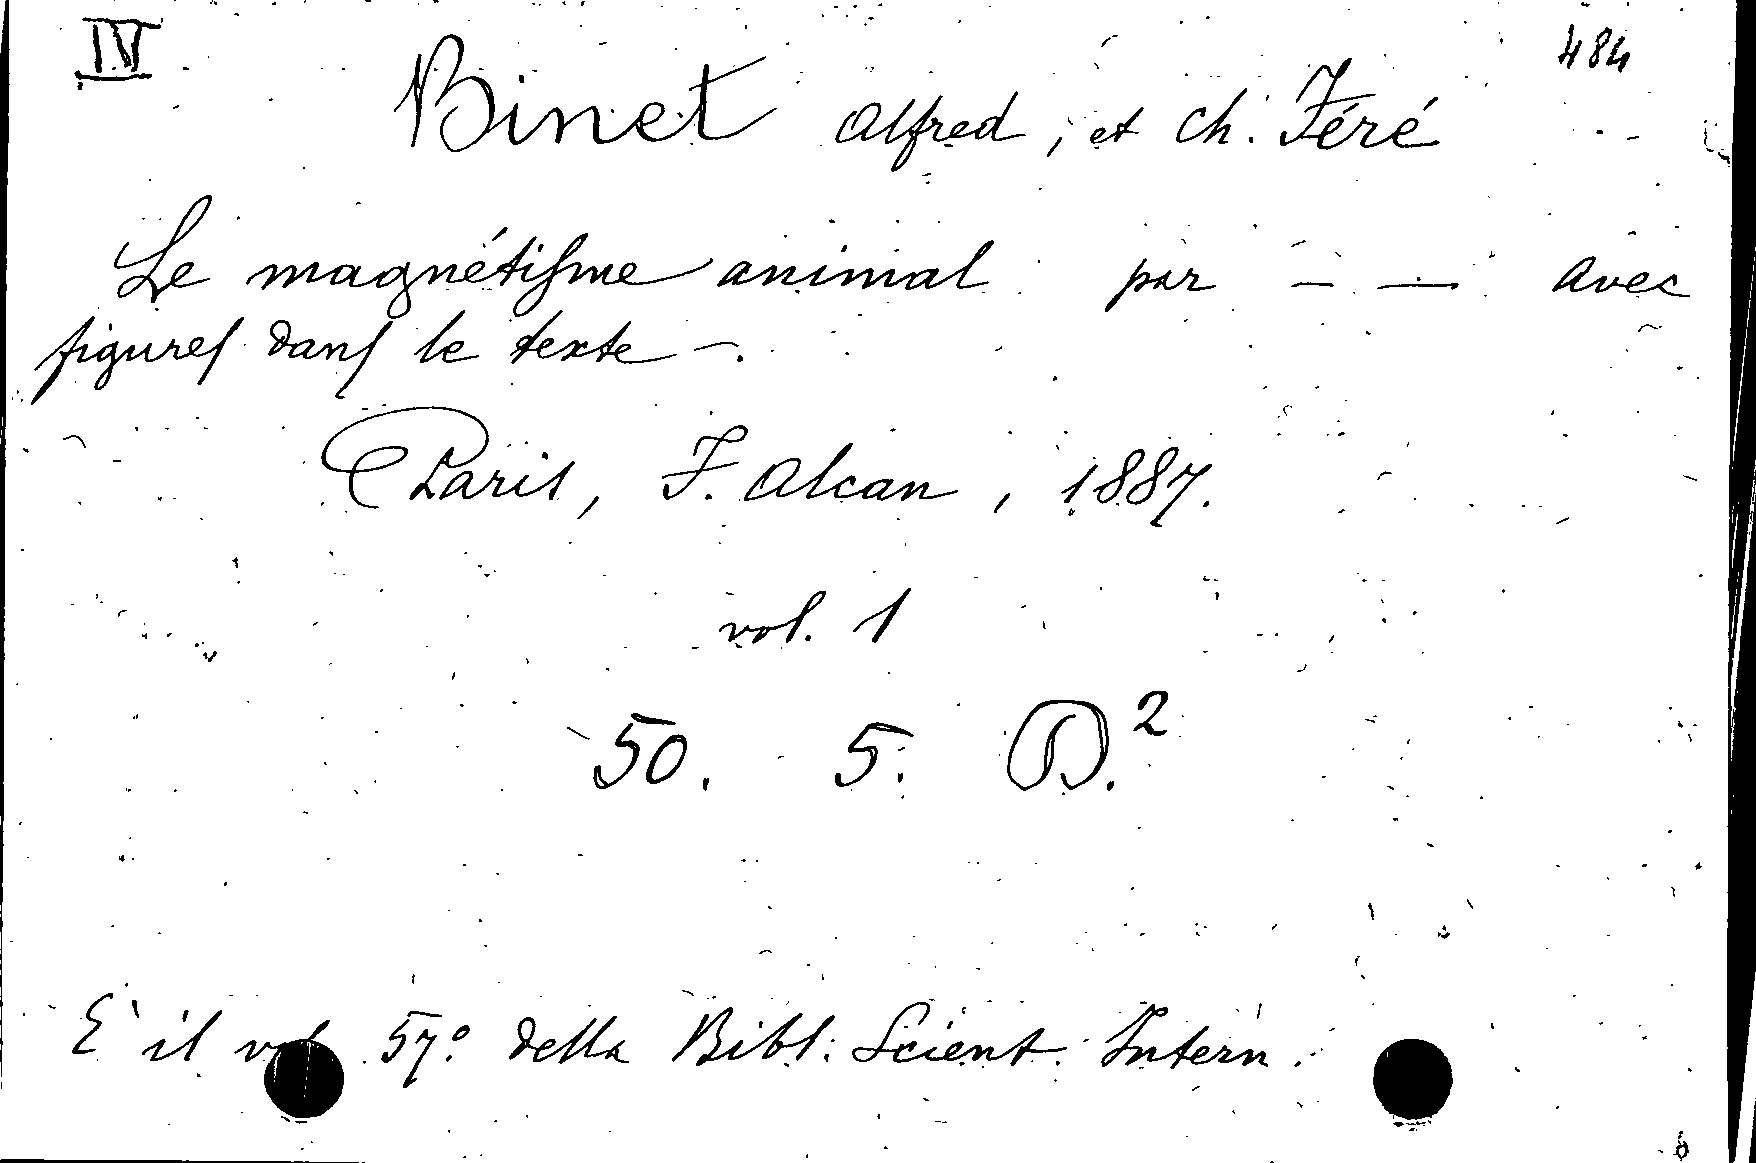 IV
484
Binet Alfred, et Ch. Féré
Le magnétisme animal par — — avec
figures dans le texte —.
Paris, F. Alcan, 1887.
vol. 1
50. 5. D.²
E' il vol 57º della Bibl. Scient. Intern.